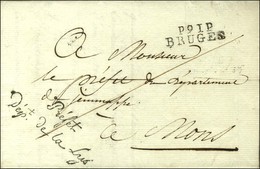 P91P
BRUGES
A Monsieur
le préfet du département
de jemmappe
à Mons
Préfet
Dépt de la Lys